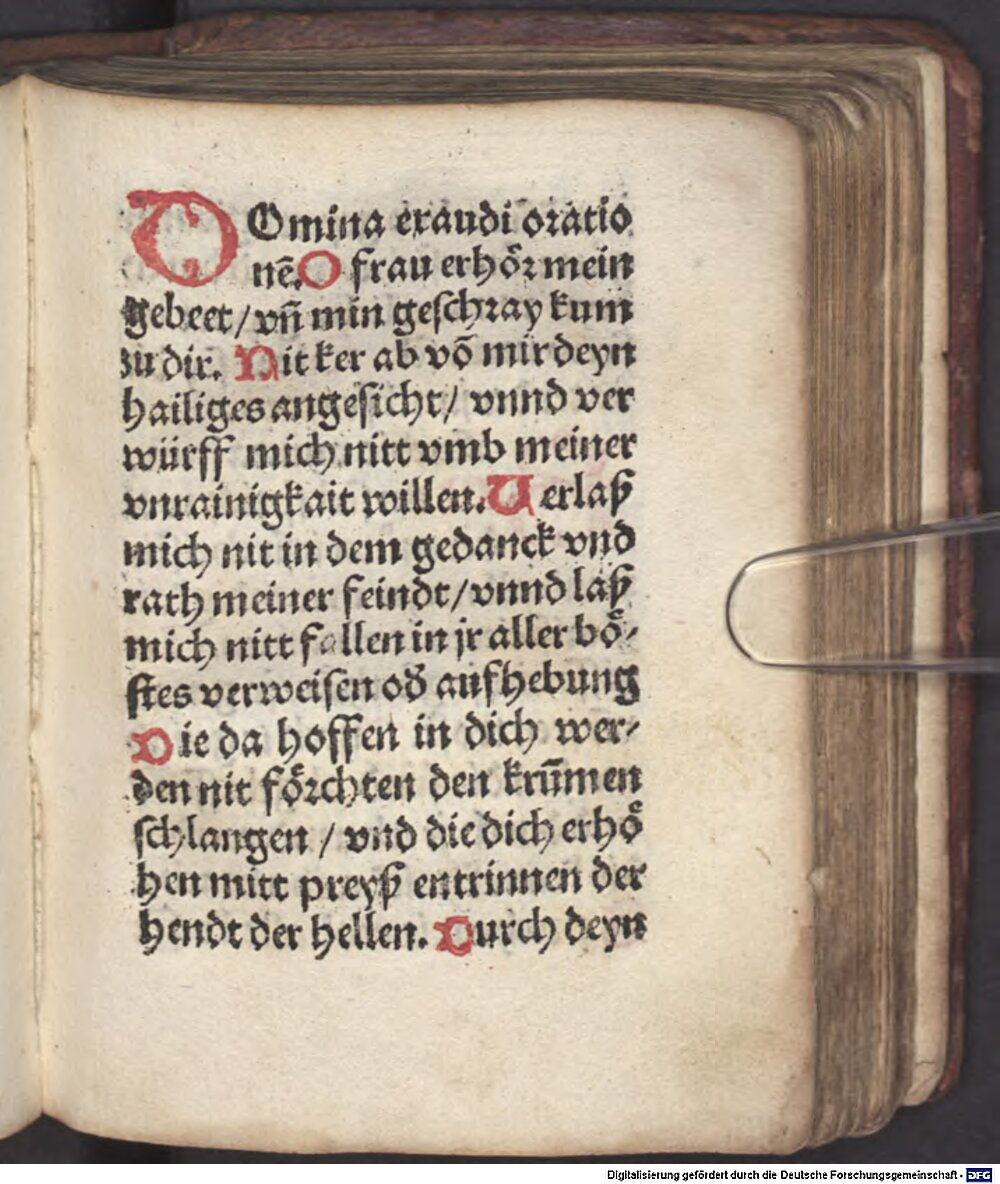 DOmina exaudi oratio
nē. O frau erhöꝛ mein
gebeet / vnd̄ min geschꝛay kum
zu dir. Nit ker ab vō mir deyn
hailiges angesicht / vnnd ver
würff mich nitt vmb meiner
vnrainigkait willen. Uerlaß
mich nit in dem gedanck vnd
rath meiner feindt / vnnd laß
mich nitt fallen in jr aller bö⸗
stes verweisen od̄ aufhebung
Die da hoffen in dich wer⸗
den nit föꝛchten den krūmen
schlangen / vnd die dich erhö
hen mitt preyß entrinnen der
hendt der hellen. Durch deyn
Digitalisierung gefördert durch die Deutsche Forschungsgemeinschaft - DFG